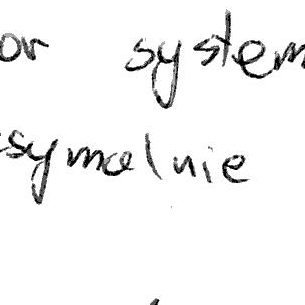 or system
symalnie